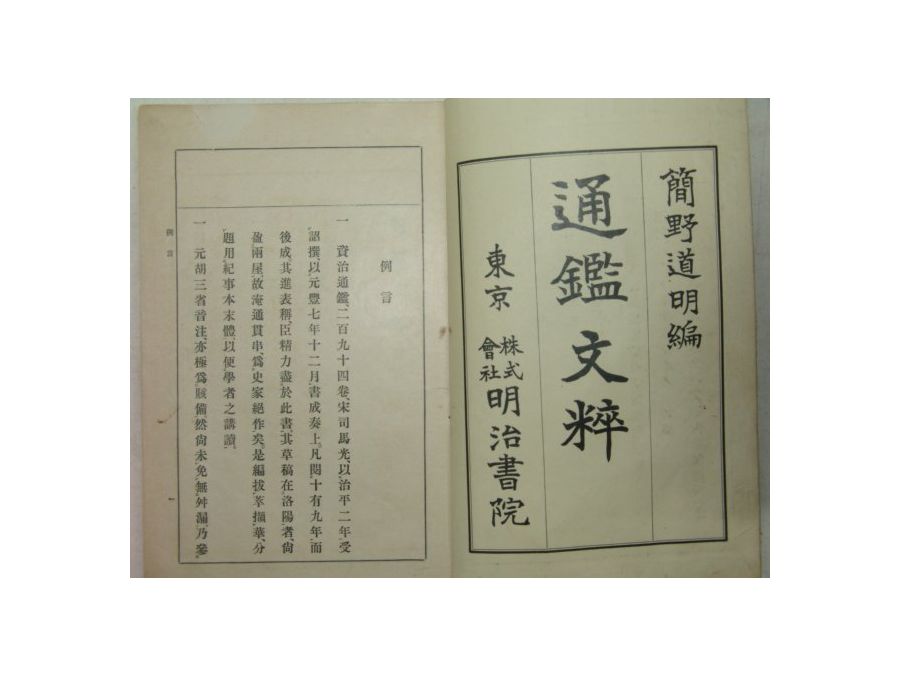 簡野道明編
通鑑文粹
東京 株式會社 明治書院
例言
一 資治通鑑、二百九十四卷、宋司馬光、以治平二年受
詔撰、以元豐七年十二月書成奏上。凡閱十有九年、而
後成。其進表稱、臣精力盡於此書。其草稿在洛陽者、尙
盈兩屋。故淹通貫串、爲史家絕作矣。是編拔萃擷華、分
題用紀事本末體、以便學者之講讀。
一 元胡三省音注、亦極爲賅備、然尙未免無舛漏、乃參
例言
一